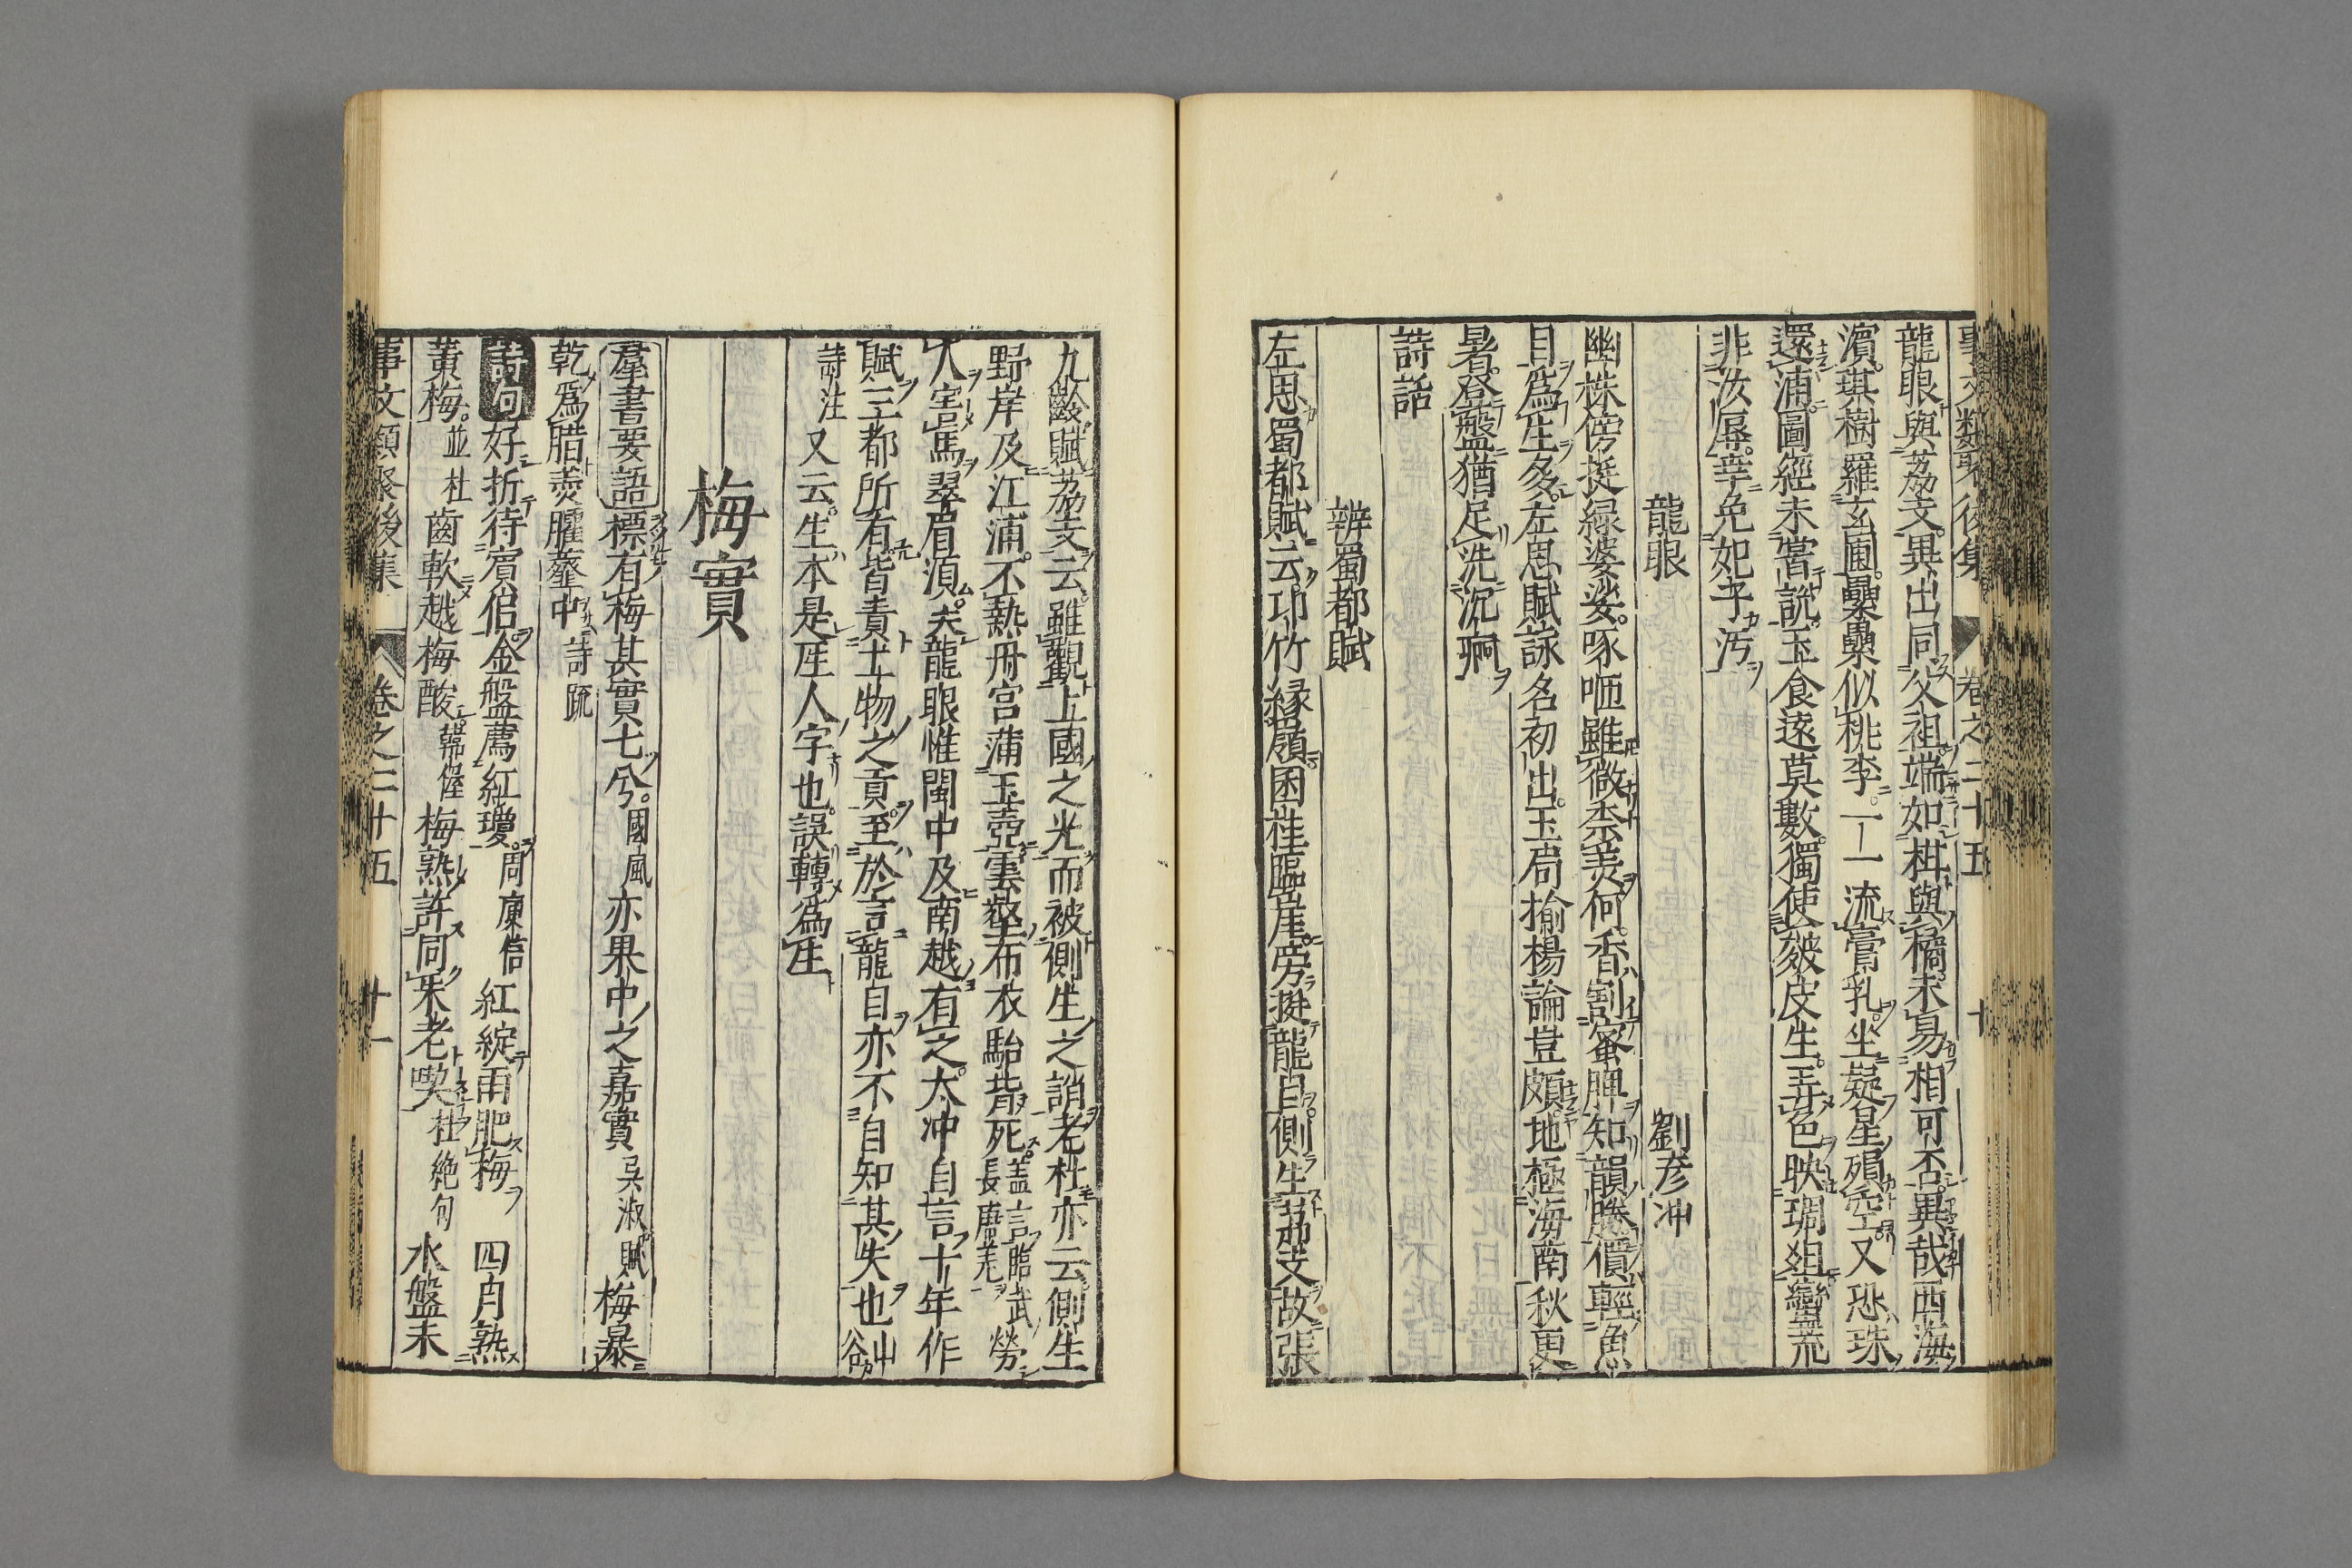 事文類聚後集 卷之二十五 十
龍眼與荔支異出同父祖端如柑與橘未易相可否異哉西海
濱琪樹羅玄圃纍纍似桃李一一流膏乳坐疑星殞空又恐珠
還浦圖經未嘗說玉食遠莫數獨使皴皮生弄色映琱俎蠻荒
非汝辱幸免妃子汚
龍眼 劉彥冲
幽株傍挺緑婆娑啄咂雖微柰羙何香割蜜脾知韻勝價輕魚
目爲生多左思賦詠名初出玉局揄楊論豈頗地極海南秋更
暑登盤猶足洗沉痾
詩話
辨蜀都賦
左思蜀都賦云卭竹縁嶺囷桂臨崖旁挺龍目側生荔支故張
九齡賦荔支云雖觀上國之光而被側生之誚老杜亦云側生
野岸及江浦不熟丹宮蒲玉壺雲壑布衣駘背死蓋言臨武長唐羌 勞
人害馬翠眉湏夫龍眼惟閩中及南越有之太冲自言十年作
賦三都所有皆責土物之貢至於言龍目亦不自知其失也山谷
詩注 又云生本是𤯔人字也誤轉爲𤯔
梅實
羣書要語 標有梅其實七兮國風 亦果中之嘉實吳淑賦 梅暴
乾爲腊羮臛虀中詩疏
詩句 好折待賓侶金盤薦紅瓊周庾信 紅綻雨肥梅 四月熟
黄梅並杜 齒軟越梅酸韓偓 梅熟許同朱老喫杜絶句 水盤未
事文類聚後集 卷之二十五 十一